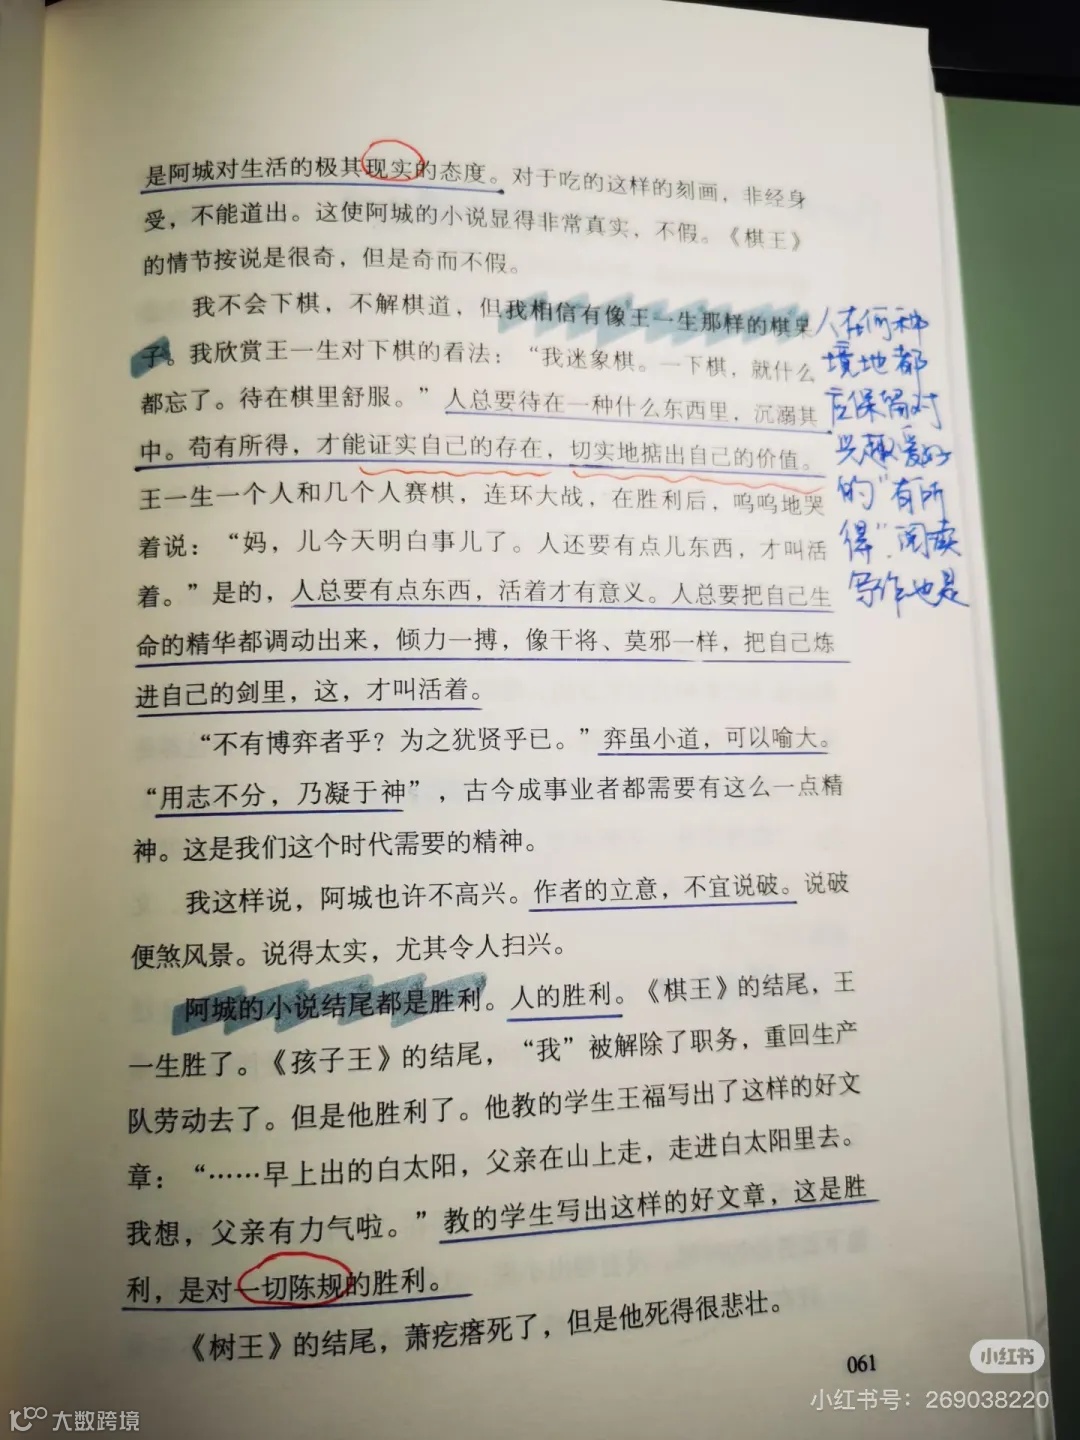 是阿城对生活的极其现实的态度。对于吃的这样的刻画，非经身
受，不能道出。这使阿城的小说显得非常真实，不假。《棋王》
的情节按说是很奇，但是奇而不假。
我不会下棋，不解棋道，但我相信有像王一生那样的棋呆
子。我欣赏王一生对下棋的看法：“我迷象棋。一下棋，就什么
都忘了。待在棋里舒服。”人总要待在一种什么东西里，沉溺其
中。苟有所得，才能证实自己的存在，切实地掂出自己的价值。
王一生一个人和几个人赛棋，连环大战，在胜利后，呜呜地哭
着说：“妈，儿今天明白事儿了。人还要有点儿东西，才叫活
着。”是的，人总要有点东西，活着才有意义。人总要把自己生
命的精华都调动出来，倾力一搏，像干将、莫邪一样，把自己炼
进自己的剑里，这，才叫活着。
“不有博弈者乎？为之犹贤乎已。”弈虽小道，可以喻大。
“用志不分，乃凝于神”，古今成事业者都需要有这么一点精
神。这是我们这个时代需要的精神。
我这样说，阿城也许不高兴。作者的立意，不宜说破。说破
便煞风景。说得太实，尤其令人扫兴。
阿城的小说结尾都是胜利。人的胜利。《棋王》的结尾，王
一生胜了。《孩子王》的结尾，“我”被解除了职务，重回生产
队劳动去了。但是他胜利了。他教的学生王福写出了这样的好文
章：“……早上出的白太阳，父亲在山上走，走进白太阳里去。
我想，父亲有力气啦。”教的学生写出这样的好文章，这是胜
利，是对一切陈规的胜利。
《树王》的结尾，萧疙瘩死了，但是他死得很悲壮。
061
人在何种
境地都
应保留对
兴趣爱好
的“有所
得”.阅读
写作也是
小红书
小红书号：269038220
大数跨境